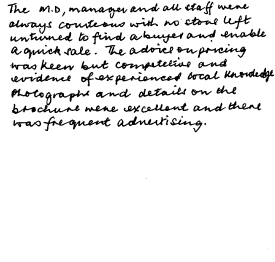 The M.D, manager and all staff were
always courteous with no stone left
unturned to find a buyer and enable
a quick sale. The advice on pricing
was keen but competitive and
evidence of experienced local knowledge
Photographs and details on the
brochure were excellent and there
was frequent advertising.